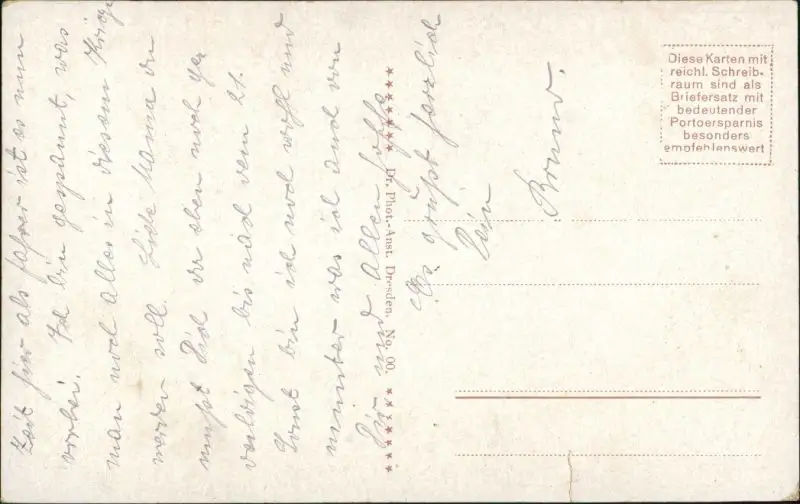 Zeit für als Fahrer ist es nun
vorbei. Ich bin gespannt, was
man noch alles in diesem Kriege
werden soll. Liebe Mama du
mußt Dich da eben noch ge
duldigen bis nach dem 21.
Sonst bin ich noch wohl und
munter was ich auch von
Dir und allen hoffe
Es grüßt herzlich
Dein
Bruno.
★★★★★★★ Dr. Phot.-Anst. Dresden. No. 00. ★★★★★★★
Diese Karten mit
reichl. Schreib-
raum sind als
Briefersatz mit
bedeutender
Portoersparnis
besonders
empfehlenswert